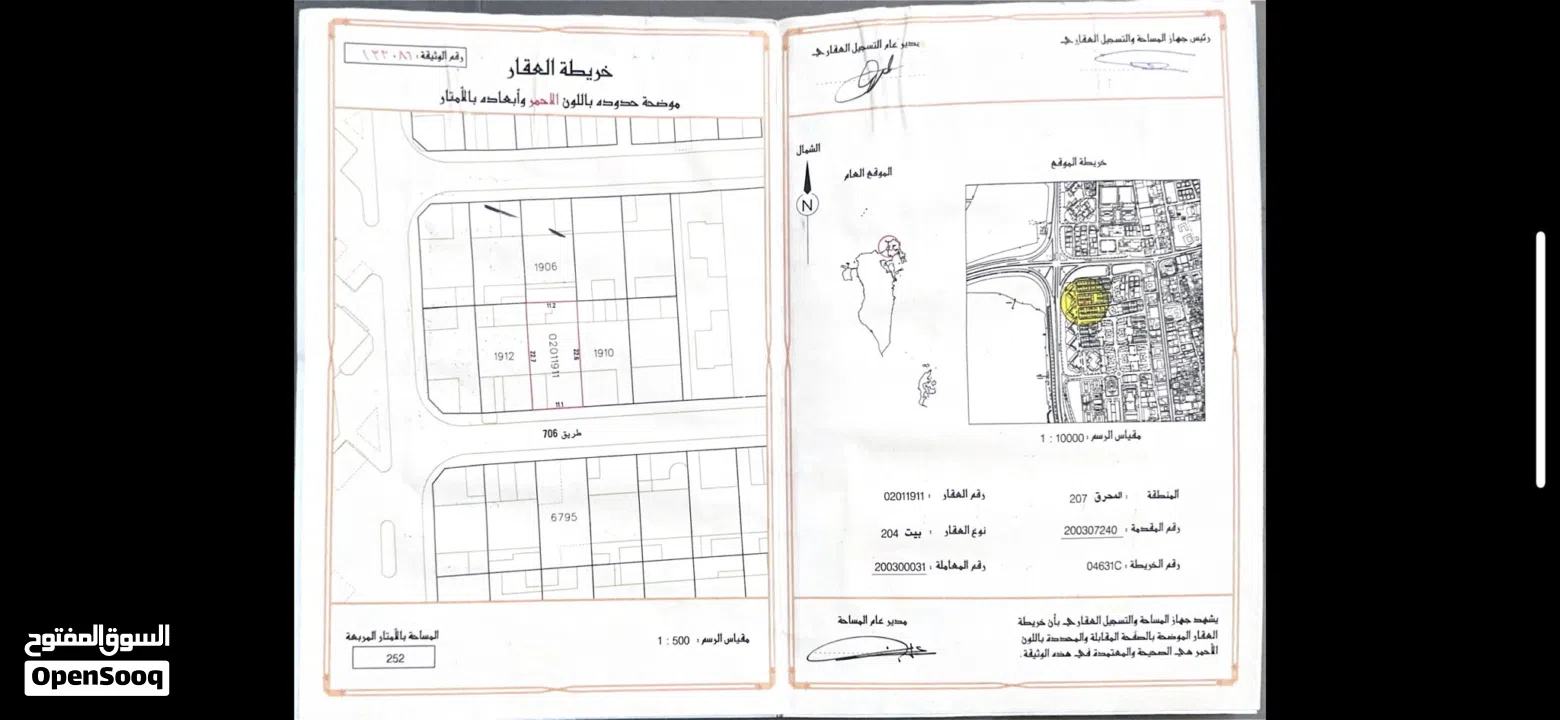 رئيس جهاز المساحة والتسجيل العقاري
مدير عام التسجيل العقاري
الشمال
N
الموقع العام
خريطة الموقع
مقياس الرسم : 10000 : 1
المنطقة : المحرق 207
رقم العقار : 02011911
رقم المقدمة : 200307240
نوع العقار : بيت 204
رقم الخريطة : 04631C
رقم المعاملة : 200300031
يشهد جهاز المساحة والتسجيل العقاري بأن خريطة
العقار الموضحة بالصفحة المقابلة والمحددة باللون
الأحمر هي الصحيحة والمعتمدة في هذه الوثيقة.
مدير عام المساحة
رقم الوثيقة : ١٣٣٠٨٦
خريطة العقار
موضحة حدوده باللون الأحمر وأبعاده بالأمتار
1906
11.2
1912
22.7
02011911
22.6
1910
11.1
طريق 706
6795
مقياس الرسم : 500 : 1
المساحة بالأمتار المربعة
252
السوق المفتوح
OpenSooq